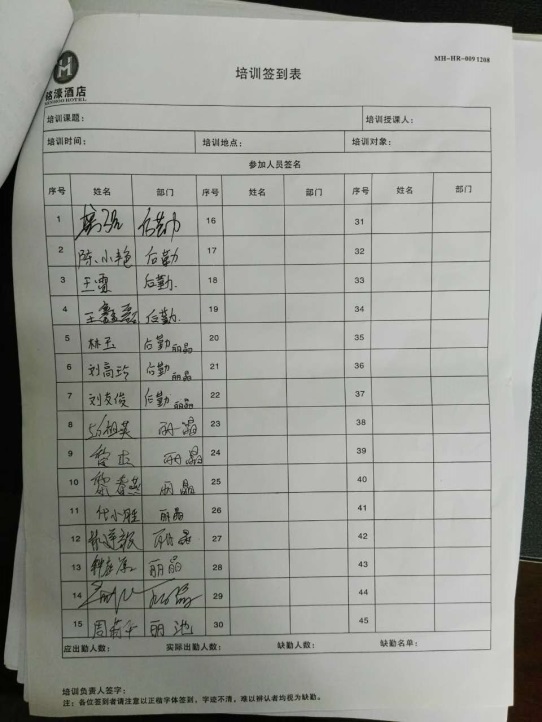 MH-HR-0091208
H
铭濠酒店
培训签到表
培训课题： 培训授课人：
培训时间： 培训地点： 培训对象：
参加人员签名
序号 姓名 部门 序号 姓名 部门 序号 姓名 部门
1 后勤 16 31
2 陈小艳 后勤 17 32
3 王雷 后勤 18 33
4 王鑫磊 后勤 19 34
5 林玉 后勤 丽晶 20 35
6 刘高玲 后勤 丽晶 21 36
7 刘友俊 后勤 丽晶 22 37
8 祖英 丽晶 23 38
9 黎 丽晶 24 39
10 黎春燕 丽晶 25 40
11 代小胜 丽晶 26 41
12 丽晶 27 42
13 丽晶 28 43
14 29 44
15 周 丽池 30 45
应出勤人数： 实际出勤人数： 缺勤人数： 缺勤名单：
培训负责人签字：
注：各位签到者请注意以正楷字体签到，字迹不清，难以辨认者均视为缺勤。